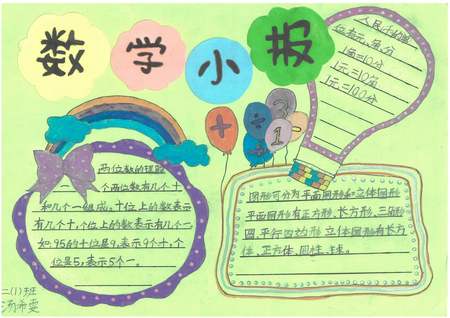 数学小报
人民币的单
位有元、角、分
1角=10分
1元=10角
1元=100分
+
÷
3
1
2
两位数的理解
一个两位数有几个十
和几个一组成。十位上的数表示
有几个十,个位上的数表示有几个一
如95的十位是9,表示9个十,个
位是5,表示5个一。
图形可分为平面图形和立体图形
平面图形有正方形、长方形、三角形
圆、平行四边形 立体图形有长方
体、正方体、圆柱、球。
二(1)班
汤希雯